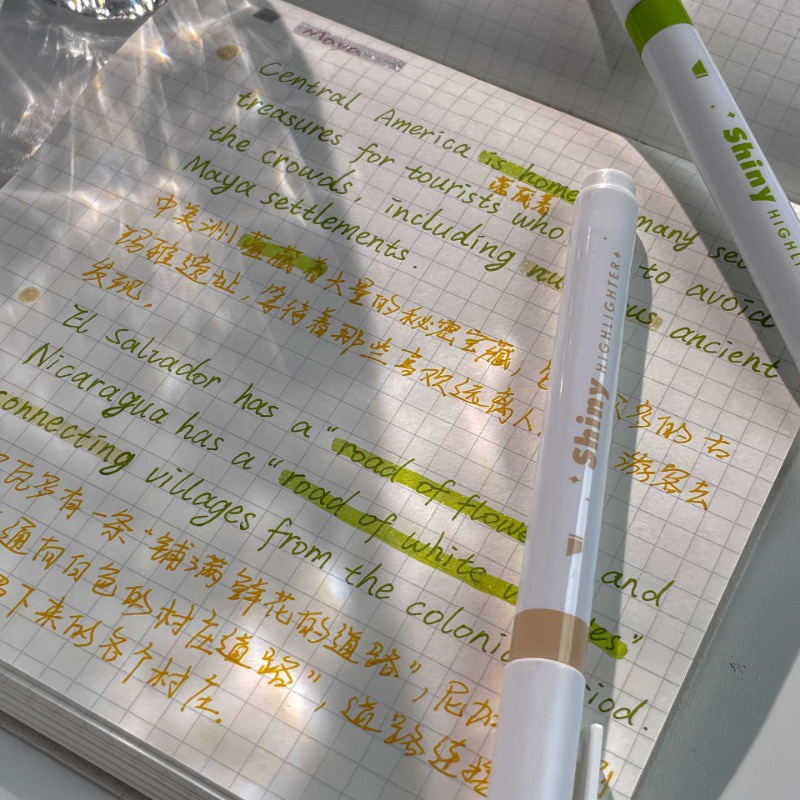 Maya
Central America is home many sec
treasures for tourists who to avoid
the crowds, including nu us ancient
Maya settlements.
蕴藏着
中美洲蕴藏着大量的秘密宝藏, 多的古
玛雅遗址, 等待着那些喜欢远离人 游客去
发现。
El Salvador has a "road of flowe and
Nicaragua has a "road of white v es"
connecting villages from the colonial riod.
瓦多有一条"铺满鲜花的道路", 尼加
通向白色的村庄道路", 道路连接
下来的各个村庄.
Shiny HIGHLIGHTER
Shiny HIGHLI